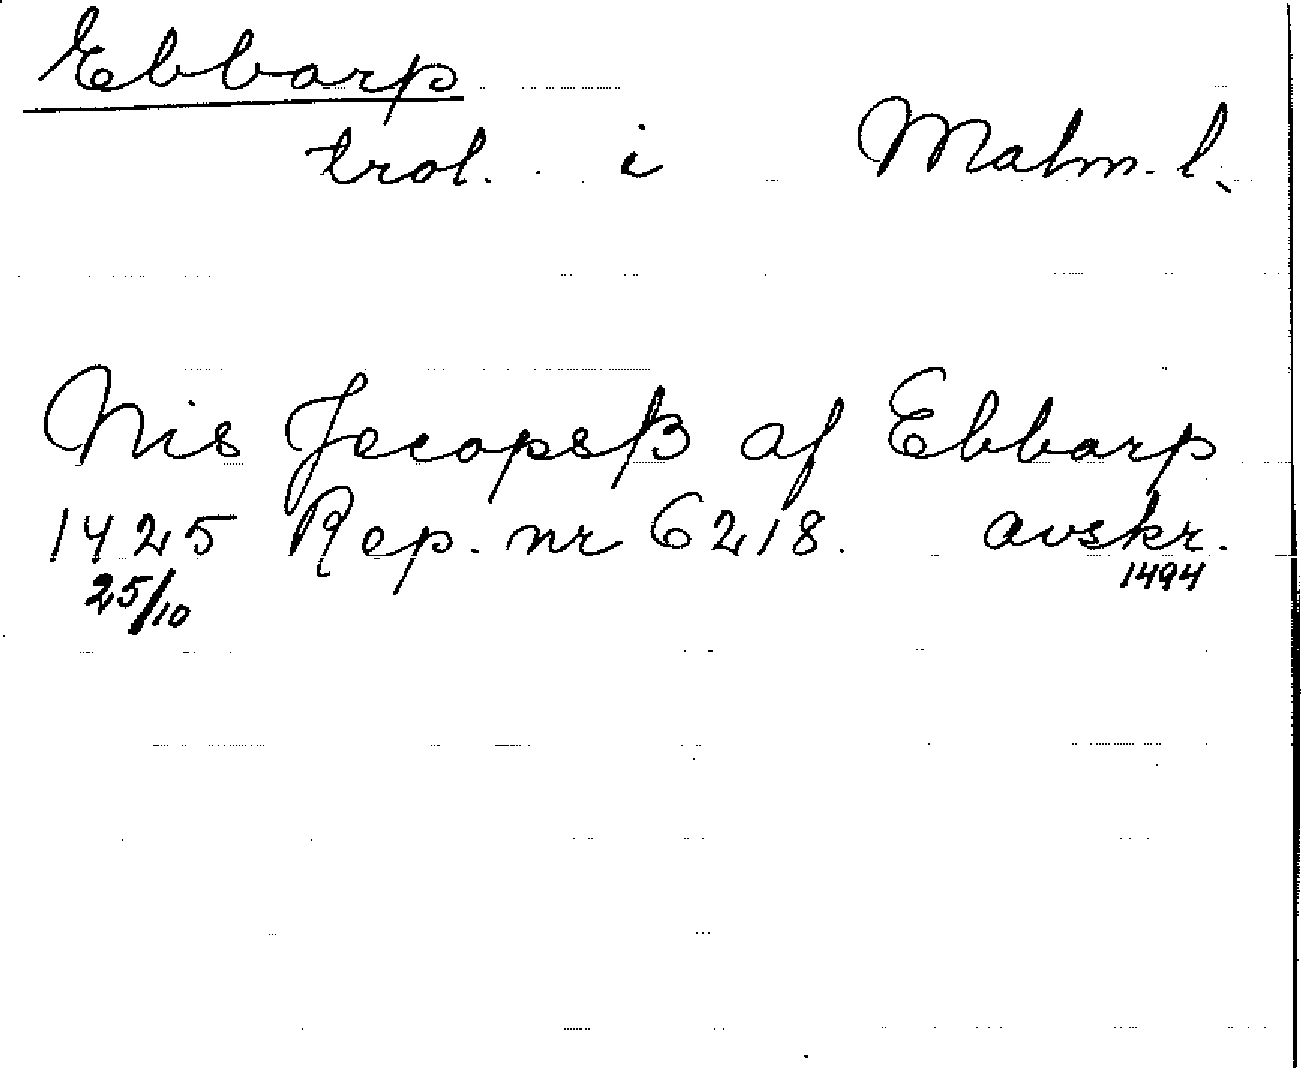 Ebbarp
trol. i Malm. l.
Nis Jecopsß af Ebbarp
1425 Rep. nr 6218. avskr.
25/10 1494